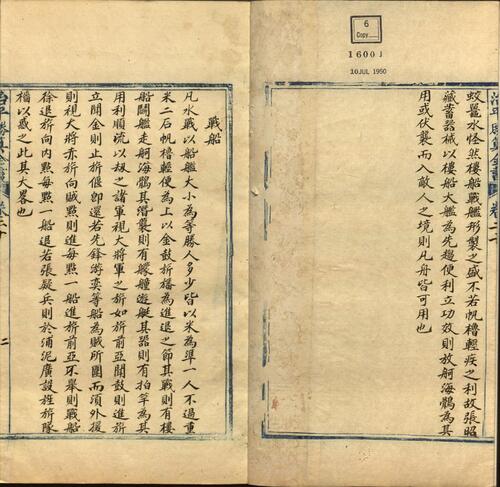 6
Copy
1600 J
10 JUL 1950
蛟鼉水怪然樓船戰艦形製之盛不若帆櫓輕疾之利故張昭
藏蓄器械以樓船大艦為先趨便利立功效則放舸海鶻為其
用或伏襲而入敵人之境則凡舟皆可用也
戰船
凡水戰以船艦大小為等勝人多少皆以米為準一人不過重
米二石帆櫓輕便為上以金鼓旂旛為進退之節其戰則有樓
船鬭艦走舸海鶻其潛襲則有艨艟遊艇其器則有拍竿為其
用利順流以刼之諸軍視大將軍之旂如旂前亞聞鼓則進旂
立聞金則止旂偃即還若先鋒游奕等船為賊所圍而須外援
則視大將赤旂向賊點則進每點一船進旂前亞不舉則戰船
徐退旂向內點每點一船退若張疑兵則於浦泥廣設旌旂隊
檣以惑之此其大畧也
治平勝算全書 卷二十
二